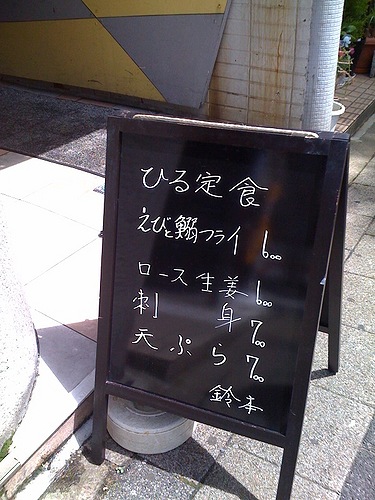 ひる定食
えびと鰯フライ 600
ロース生姜 600
刺身 700
天ぷら 700
鈴本